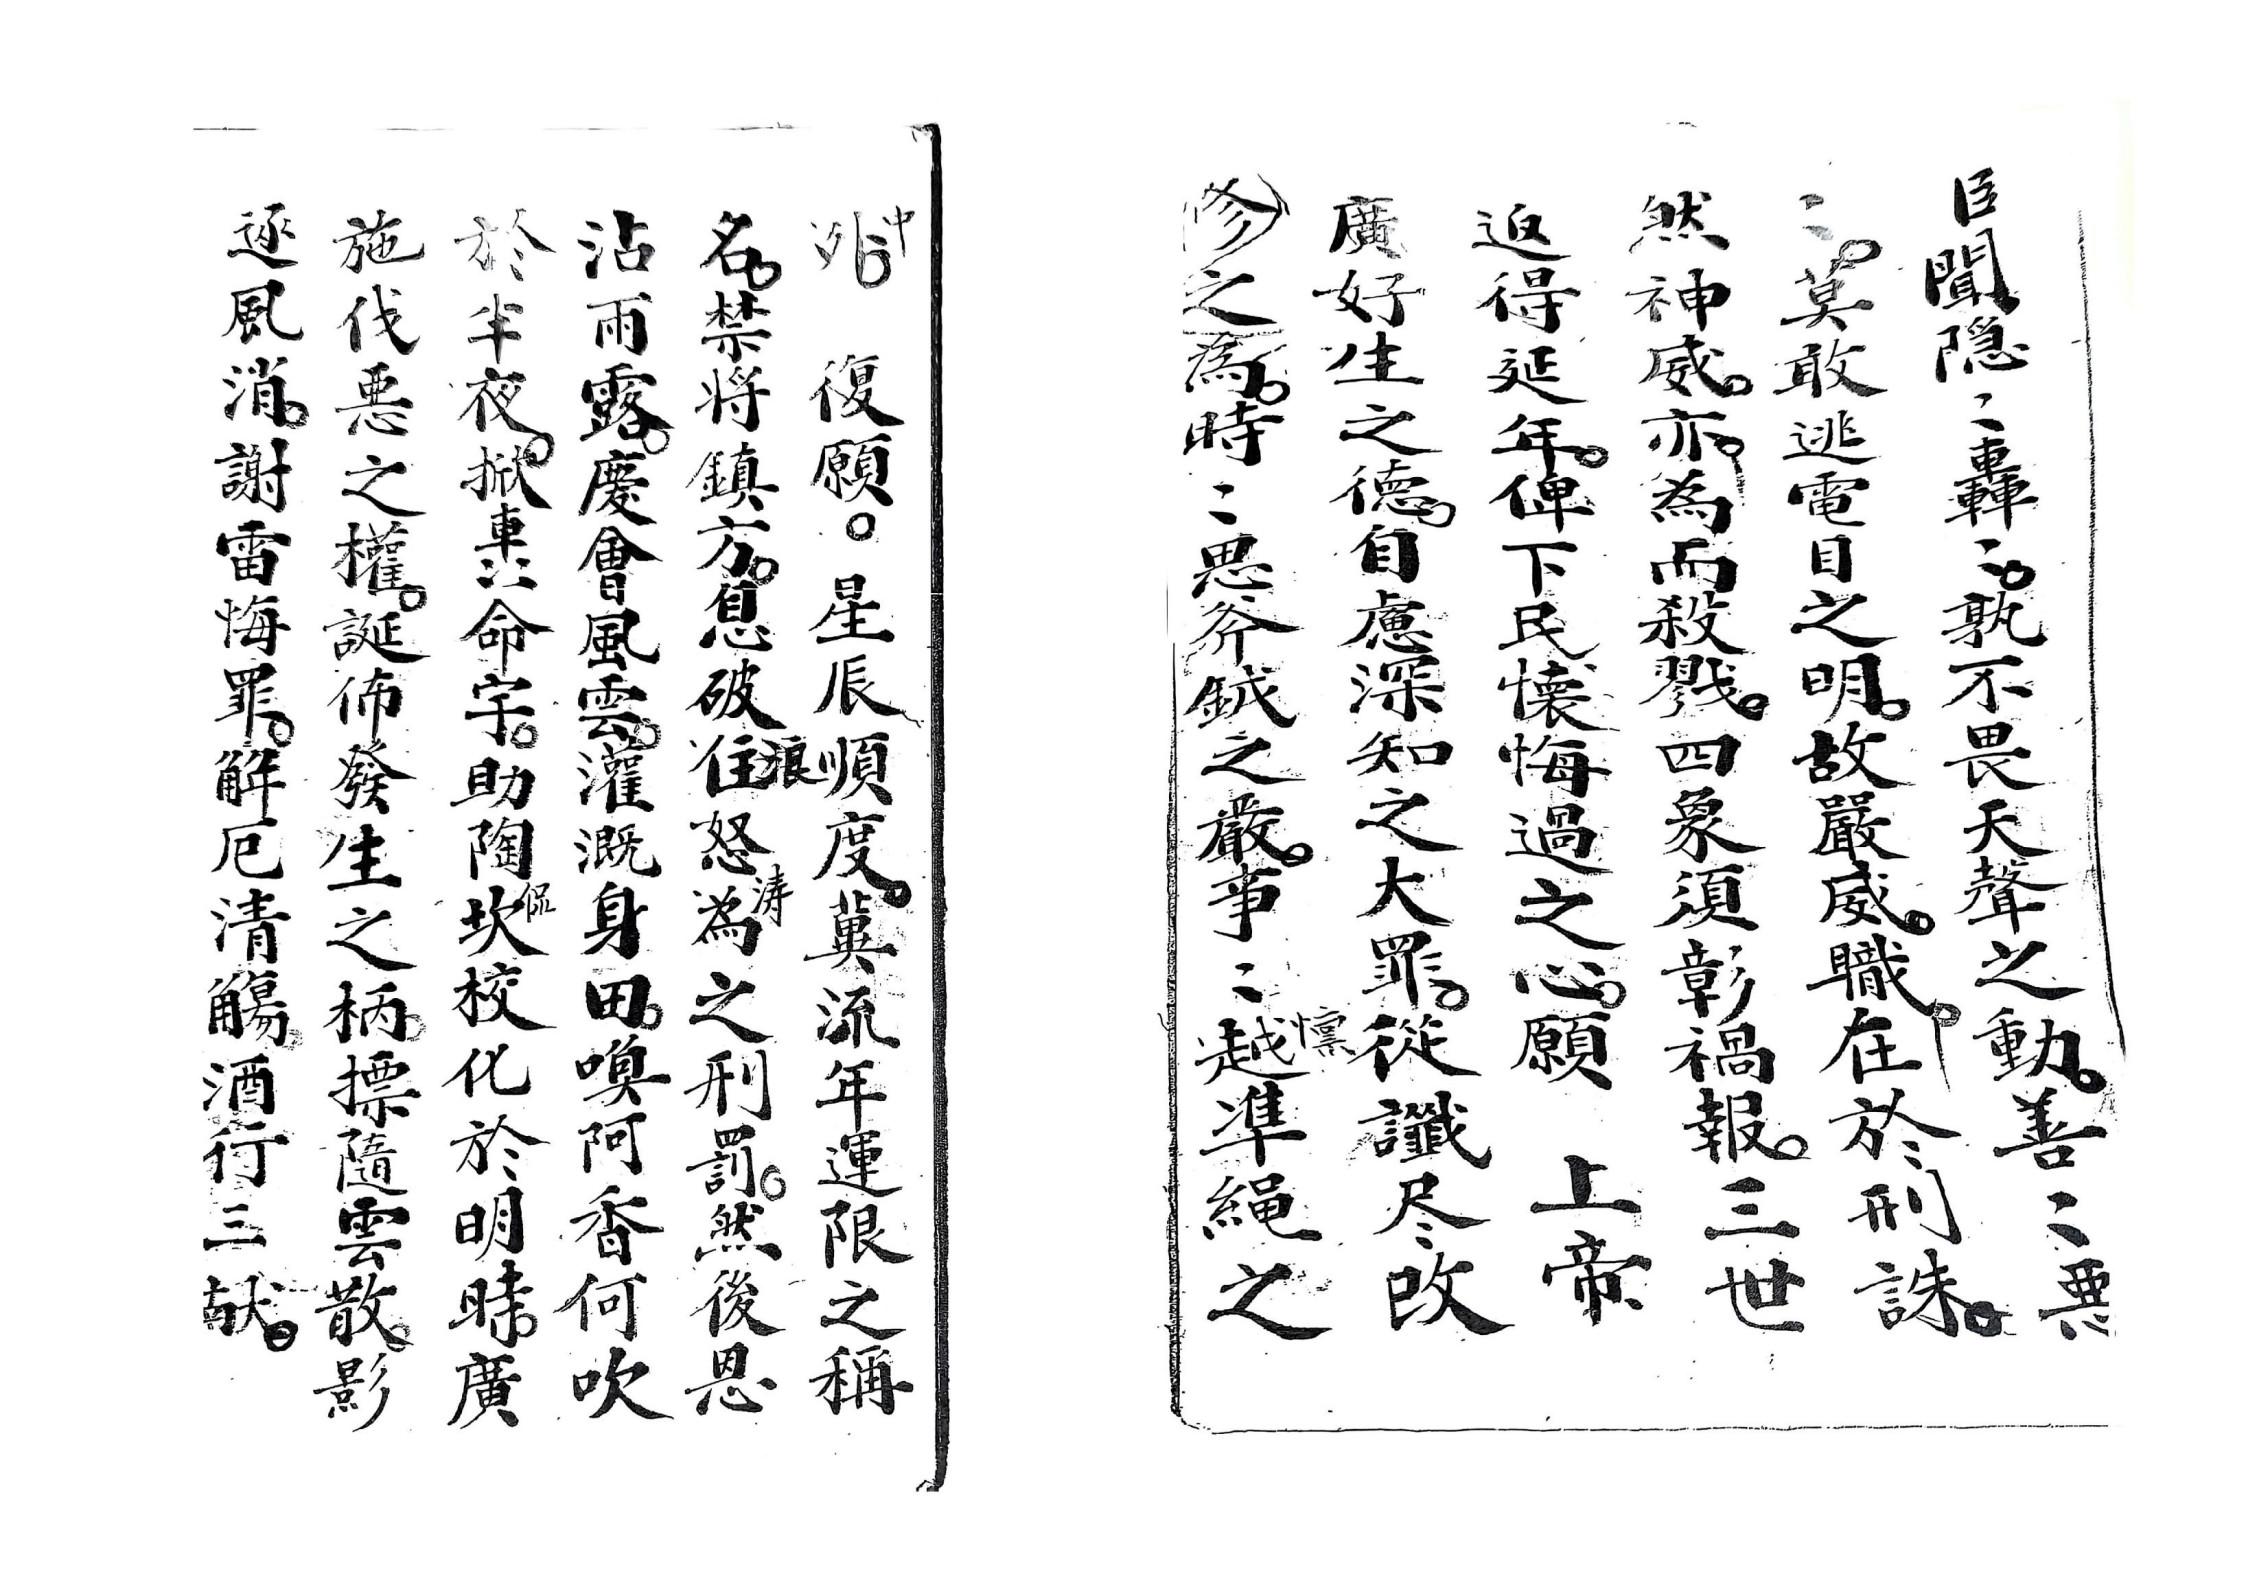 臣聞隐〻轟〻孰不畏天聲之動善〻悪
〻莫敢逃電目之明故嚴威職在於刑誅
然神威亦為而殺戮四象須彰禍報三世
返得延年俾下民懷悔過之心願 上帝
廣好生之德自慮深知之大罪從讖尽改
修之為時〻思斧鉞之嚴事〻越準繩之
懍
中
復願星辰順度冀流年運限之稱
名禁将鎮方息破住怒為之刑罰然後恩
痕
涛
沾雨露慶會風雲灌溉身田喚阿香何吹
於半夜掀車 命宇助陶坎校化於明時廣
施伐悪之權誕佈發生之柄摽隨雲散影
逐風消謝雷悔罪解厄清觴酒行三献